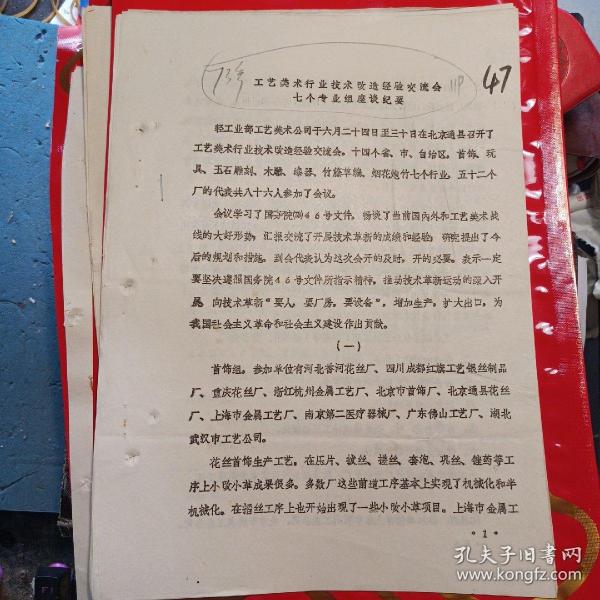 47
11P
工艺美术行业技术改造经验交流会
七个专业组座谈纪要
轻工业部工艺美术公司于六月二十四日至三十日在北京通县召开了
工艺美术行业技术改造经验交流会。十四个省、市、自治区，首饰、玩
具、玉石雕刻、木雕、漆器、竹藤草编、烟花炮竹七个行业，五十二个
厂的代表共八十六人参加了会议。
会议学习了国务院 46号文件，畅谈了当前国内外和工艺美术战
线的大好形势，汇报交流了开展技术革新的成绩和经验，研究提出了今
后的规划和措施。到会代表认为这次会开的及时，开的必要。表示一定
要坚决遵照国务院46号文件所指示精神，推动技术革新运动的深入开
展，向技术革新“要人，要厂房，要设备”，增加生产，扩大出口，为
我国社会主义革命和社会主义建设作出贡献。
（一）
首饰组，参加单位有河北香河花丝厂、四川成都红旗工艺银丝制品
厂、重庆花丝厂、浙江杭州金属工艺厂、北京市首饰厂、北京通县花丝
厂、上海市金属工艺厂、南京第二医疗器械厂、广东佛山工艺厂、湖北
武汉市工艺公司。
花丝首饰生产工艺，在压片、拔丝、搓丝、套泡、巩丝、锉药等工
序上小改小革成果很多。多数厂这些前道工序基本上实现了机械化和半
机械化。在掐丝工序上也开始出现了一些小改小革项目。上海市金属工
·1·
孔夫子旧书网
www.kongfz.com